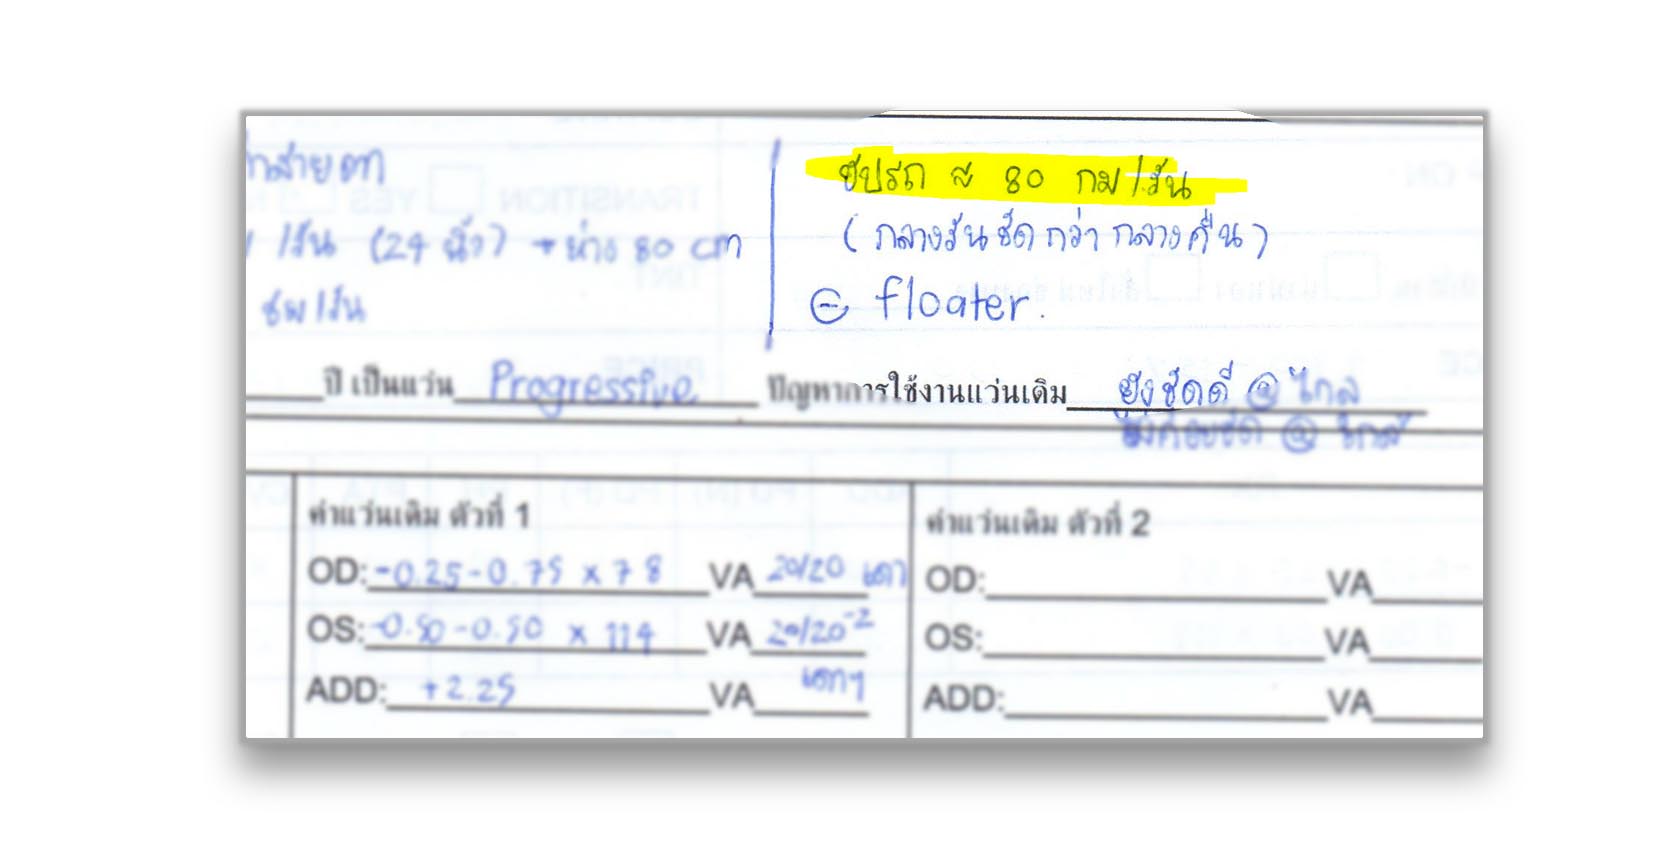 สายตา
ขับรถ ≈ 80 กม/วัน
/วัน (24 นิ้ว) → ห่าง 80 cm
(กลางวันชัดกว่ากลางคืน)
ชม/วัน
⊖ floater.
ปี เป็นแว่น Progressive ปัญหาการใช้งานแว่นเดิม ยังชัดดี @ ไกล
ไม่ค่อยชัด @ ใกล้
ค่าแว่นเดิม ตัวที่ 1
ค่าแว่นเดิม ตัวที่ 2
OD: -0.25-0.75 x 78 VA 20/20 เดา
OD: VA
OS: -0.50-0.50 x 114 VA 20/20⁻²
OS: VA
ADD: +2.25 VA เดาๆ
ADD: VA